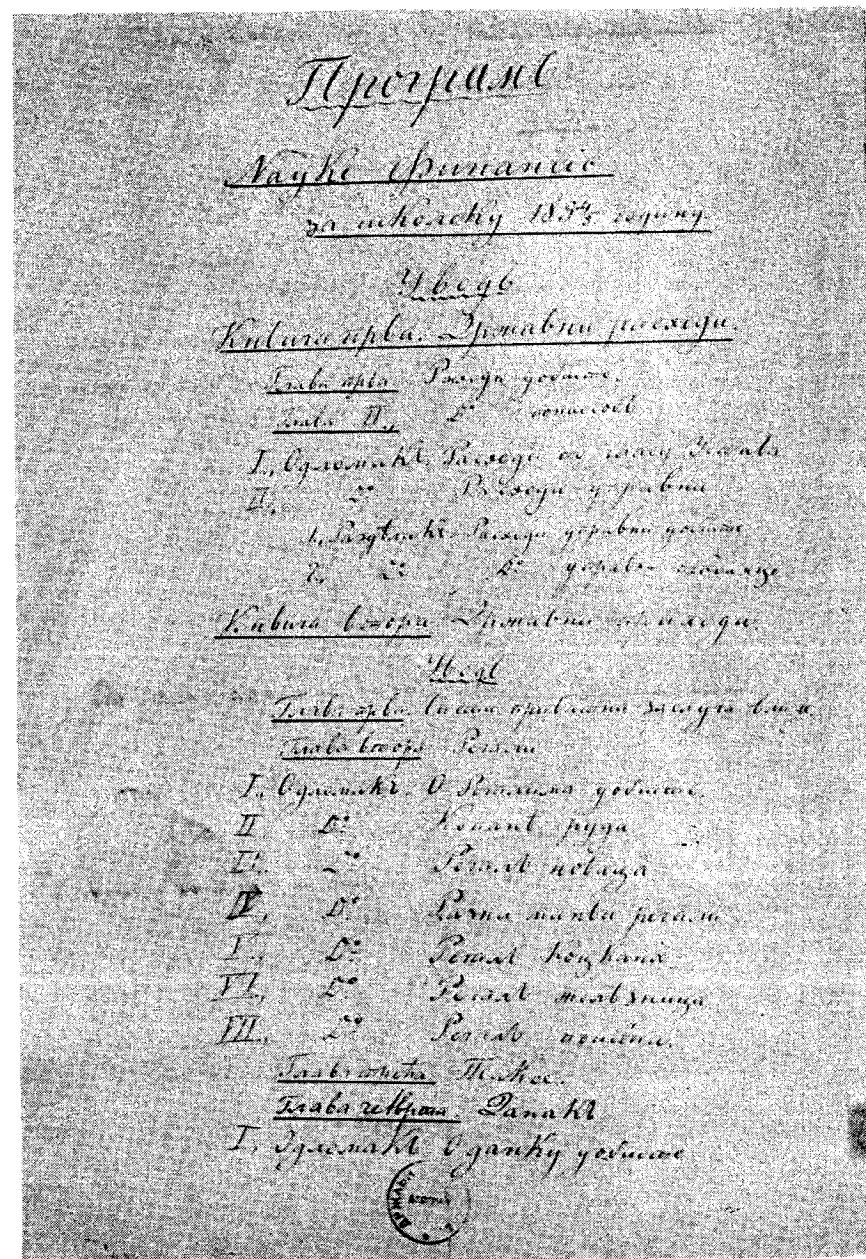 Програмъ
Науке Финансіе
за школску 1854/5 годину.
Уводъ
Книга прва. Државни расходи.
Глава прва. Расходи уобште.
Глава II., Dº
I., Одломакъ. Расходи
II. Dº Расходи управни
1., Раздѣлакъ. Расходи управни уобште
2., Dº Dº управе
Книга втора Државни приходи
Уводъ
Глава прва.
Глава втора Регали
I., Одломакъ. О Регалима уобште.
II Dº Копанѣ руда
III. Dº Регалъ новаца
IV., Dº Разни манѣи регали
V., Dº Регалъ коцканя
VI., Dº Регалъ желѣзница
VII. Dº Регалъ
Глава трећа. Таксе.
Глава четврта. Данакъ
I., Одломакъ О данку уобште